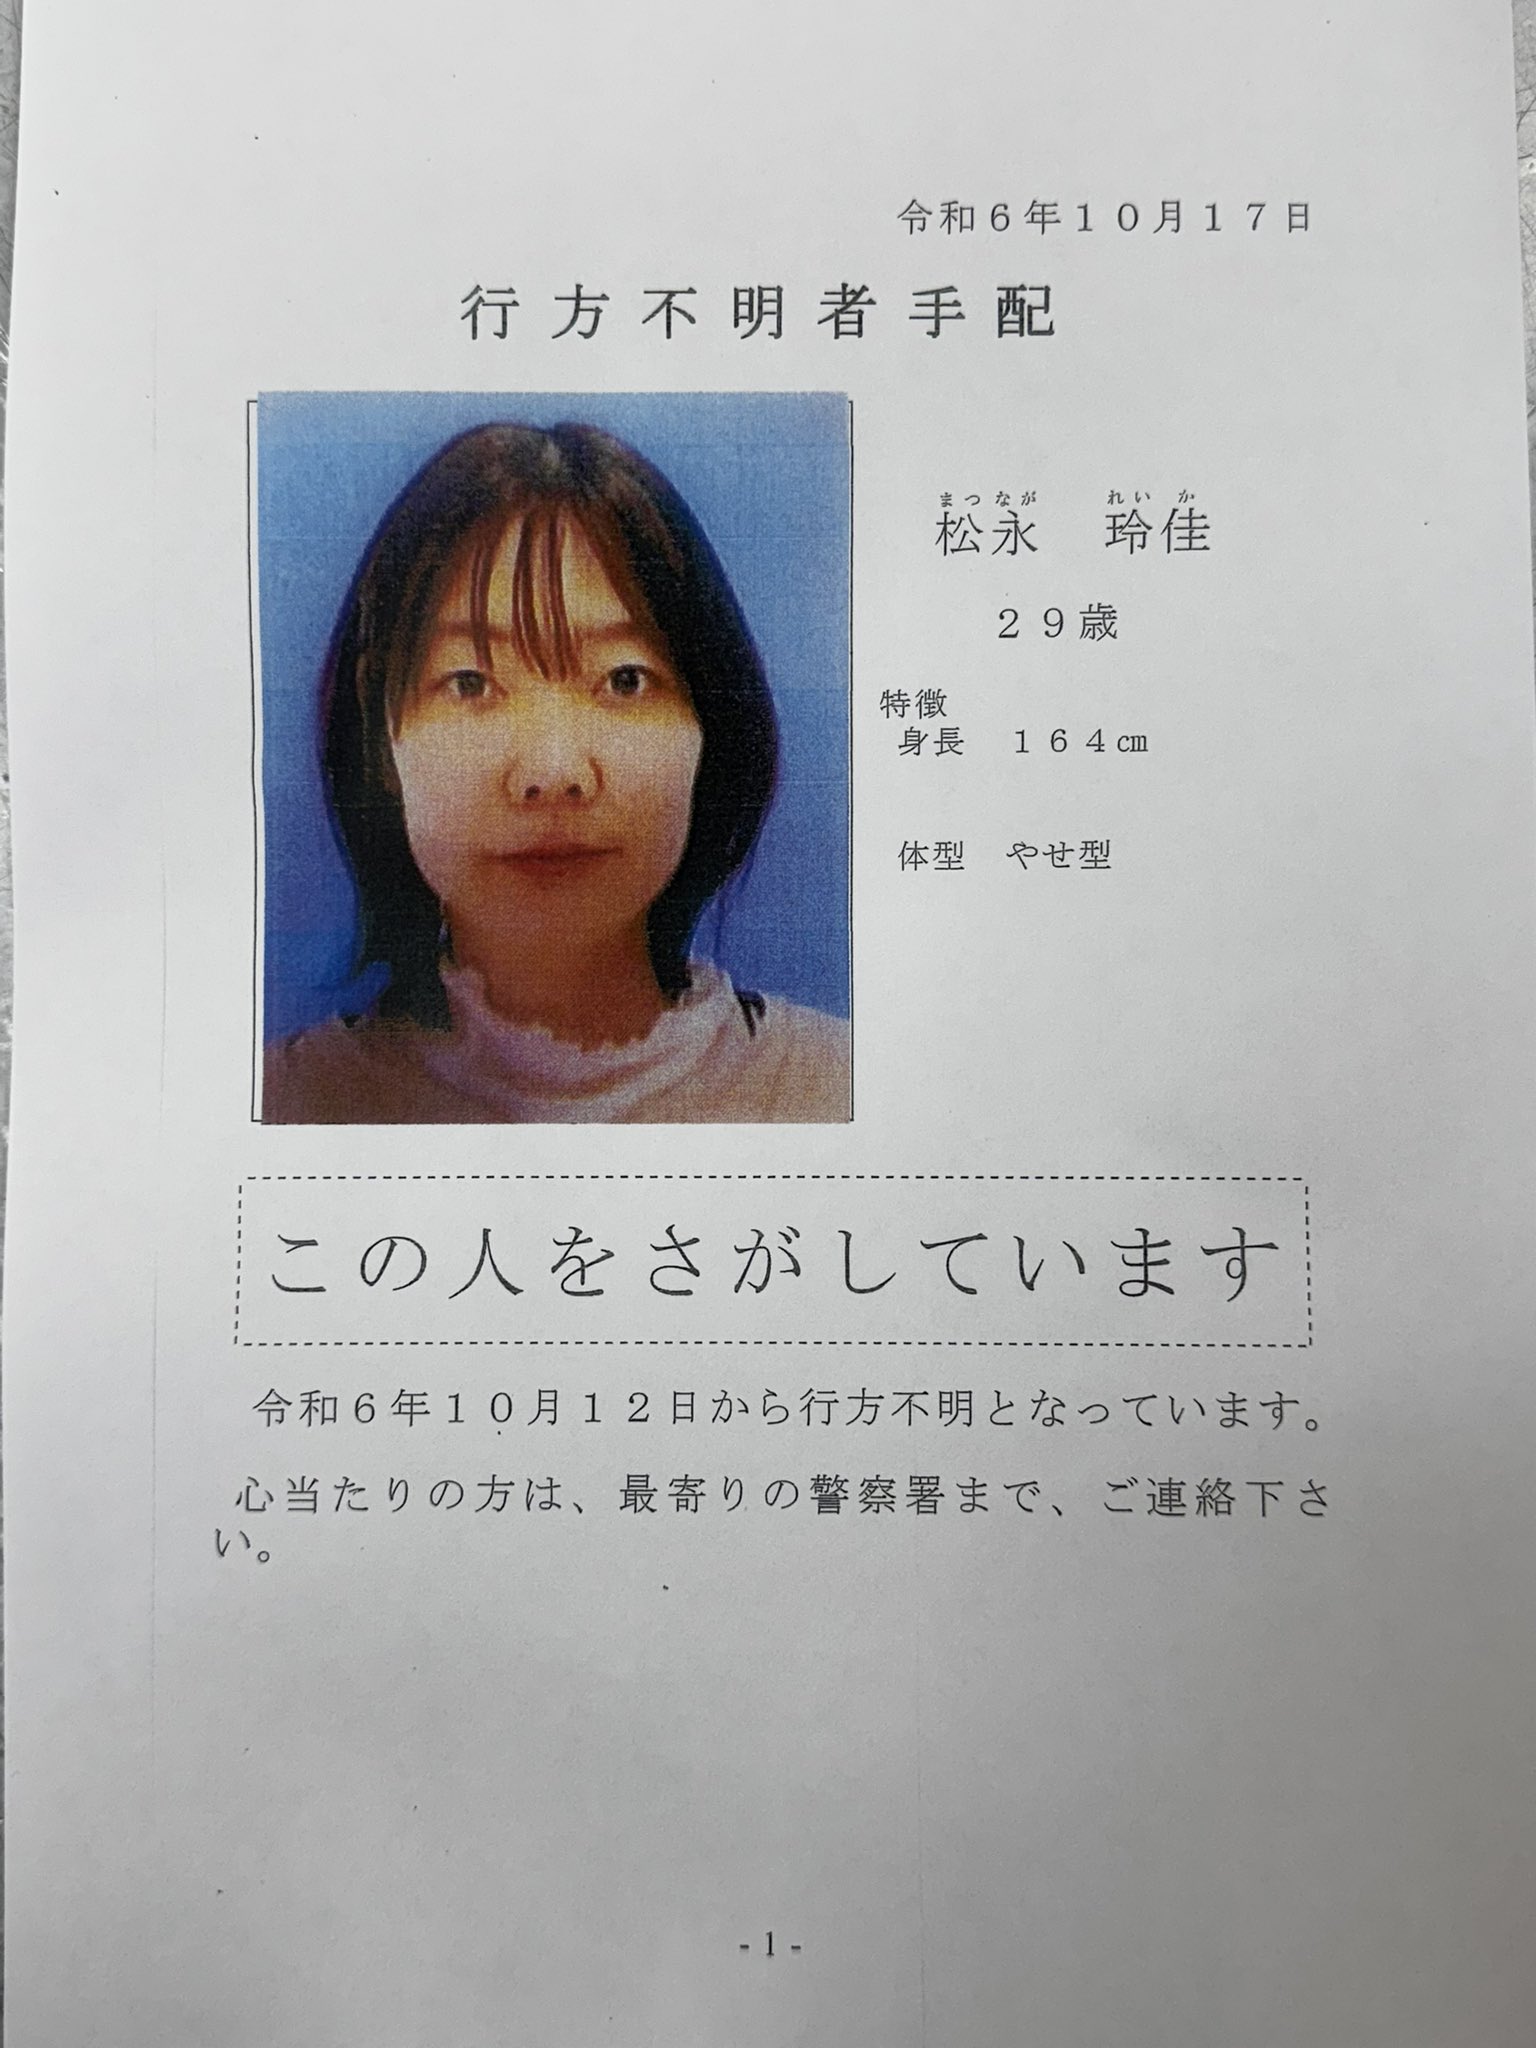 令和６年１０月１７日
行方不明者手配
まつなが　れいか
松永　玲佳
２９歳
特徴
身長　１６４㎝
体型　やせ型
この人をさがしています
令和６年１０月１２日から行方不明となっています。
心当たりの方は、最寄りの警察署まで、ご連絡下さ
い。
- 1 -